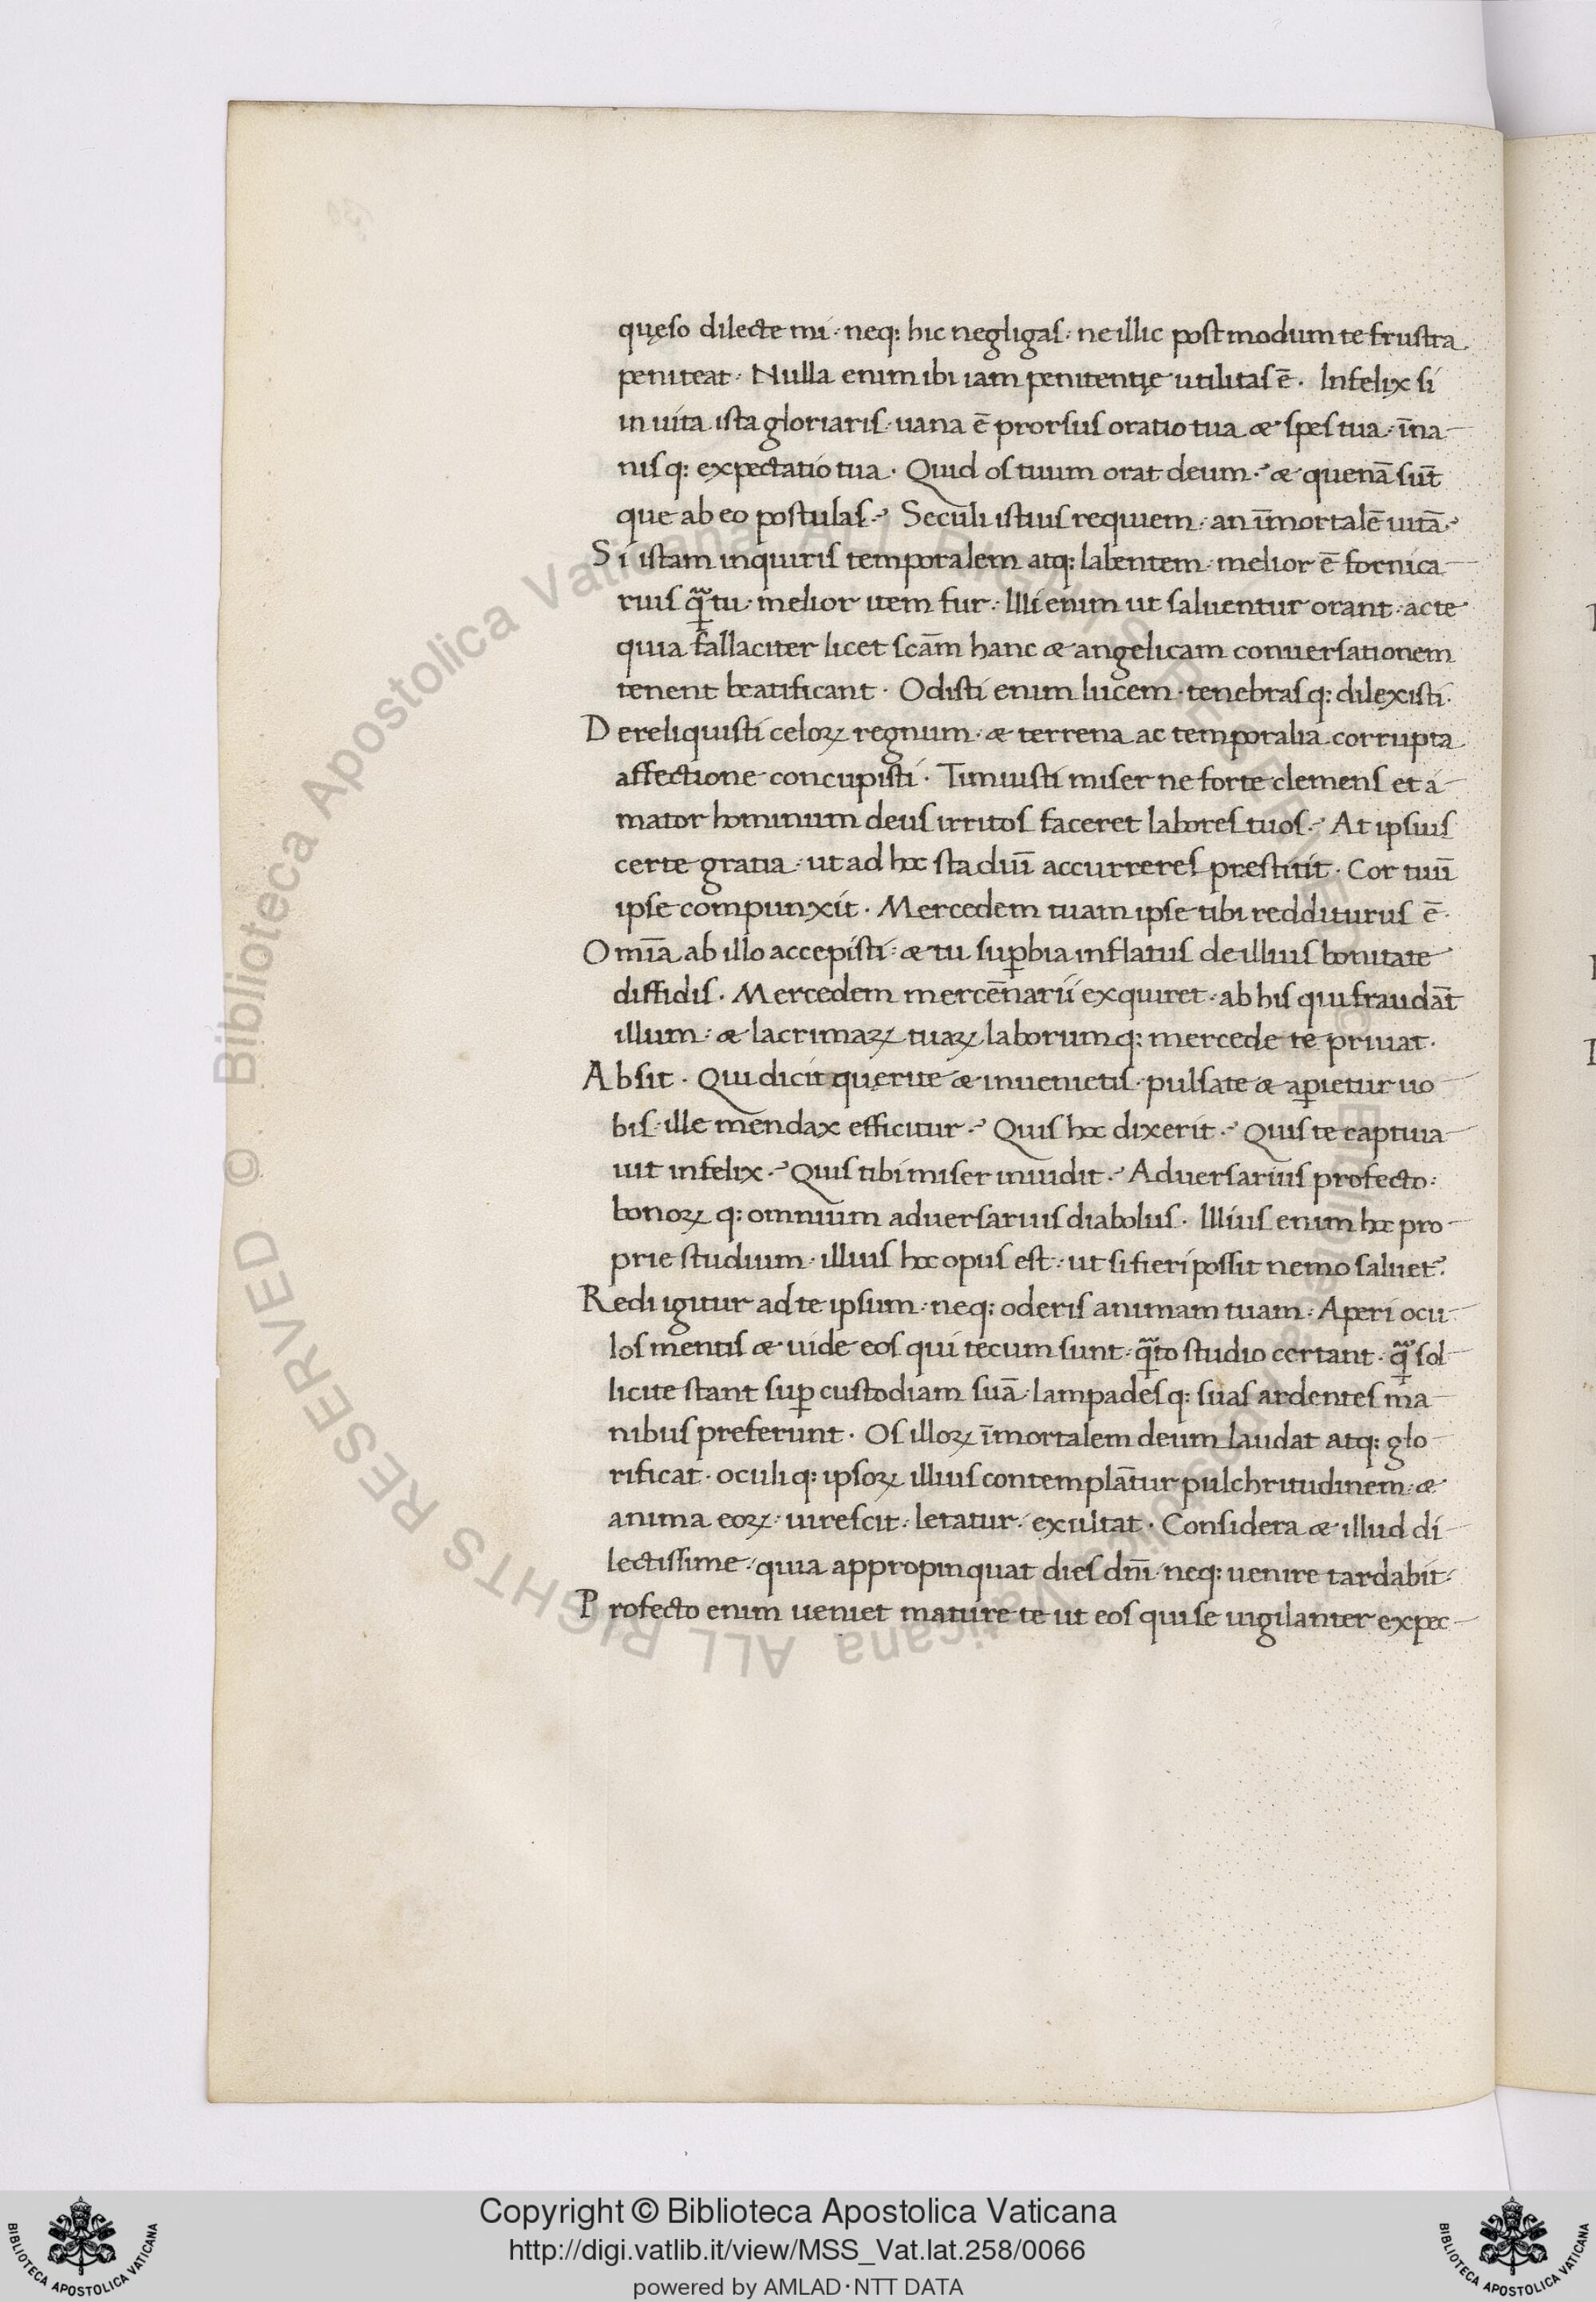 quęso dilecte mi · neq: hic negligas · ne illic postmodum te frustra
peniteat · Nulla enim ibi iam penitentię utilitas ē · Infelix si
in uita ista gloriaris · uana ē prorsus oratio tua æ spes tua · īna
nisq: expectatio tua · Quid os tuum orat deum ·? æ quenā sūt
que ab eo postulas ·? Seculi istius requiem · an īmortalē uitā ·?
Si istam inquiris temporalem atq: labentem · melior ē fornica
rius ꝗ̄ tu · melior item fur · Illi enim ut saluentur orant · ac te
quia fallaciter licet scām hanc æ angelicam conuersationem
tenent beatificant · Odisti enim lucem · tenebrasq: dilexisti ·
Dereliquisti celoꝝ regnum · æ terrena ac temporalia corrupta
affectione concupisti · Timuisti miser ne forte clemens et a
mator hominum deus irritos faceret labores tuos ·? At ipsius
certe gratia · ut ad hoc stadiuī accurreres prestitit · Cor tuū
ipse compunxit · Mercedem tuam ipse tibi redditurus ē ·
Omīa ab illo accepisti · æ tu suꝑbia inflatus de illius bonitate
diffidis · Mercedem mercēnarii exquiret · ab his qui fraudāt
illum · æ lacrimaꝝ tuaꝝ laborumq: mercede te priuat ·
Absit · Qui dicit quęrite æ inuenietis · pulsate æ aꝑietur uo
bis · ille mendax efficitur ·? Quis hoc dixerit ·? Quis te captiua
uit infelix ·? Quis tibi miser inuidit ·? Aduersarius profecto ·
bonoꝝ q: omnium aduersarius diabolus · Illius enim hoc pro
prie studium · illius hoc opus est · ut si fieri possit nemo saluet᷑ ·
Redi igitur ad te ipsum · neq: oderis animam tuam · Aperi ocu
los mentis æ uide eos qui tecum sunt · ꝗ̄to studio certant · ꝗ̄ sol
licite stant suꝑ custodiam suā · lampadesq: suas ardentes ma
nibus preferunt · Os illoꝝ īmortalem deum laudat atq: glo
rificat · oculiq: ipsoꝝ illius contemplāntur pulchritudinem · æ
anima eoꝝ · uirescit · letatur · exultat · Considera æ illud di
lectissime · quia appropinquat dies dn̄i · neq: uenire tardabit ·
Profecto enim ueniet mature te ut eos qui se uigilanter expec
Copyright © Biblioteca Apostolica Vaticana
http://digi.vatlib.it/view/MSS_Vat.lat.258/0066
powered by AMLAD·NTT DATA
BIBLIOTECA APOSTOLICA VATICANA
BIBLIOTECA APOSTOLICA VATICANA
© Biblioteca Apostolica Vaticana ALL RIGHTS RESERVED
© Biblioteca Apostolica Vaticana ALL RIGHTS RESERVED